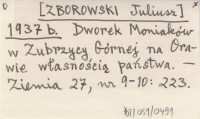 [ZBOROWSKI Juliusz]
1937 b. Dworek Moniaków
w Zubrzycy Górnej na Ora-
wie własnością państwa. —
Ziemia 27, nr 9-10: 223.